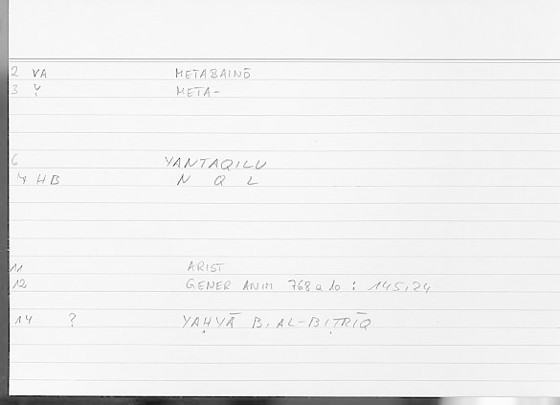 2 VA METABAINŌ
3 Y META-
6 YANTAQILU
7 HB N Q L
11 ARIST
12 GENER ANIM 768a10 : 145,24
14 ? YAḤYĀ B. AL-BIṬRĪQ